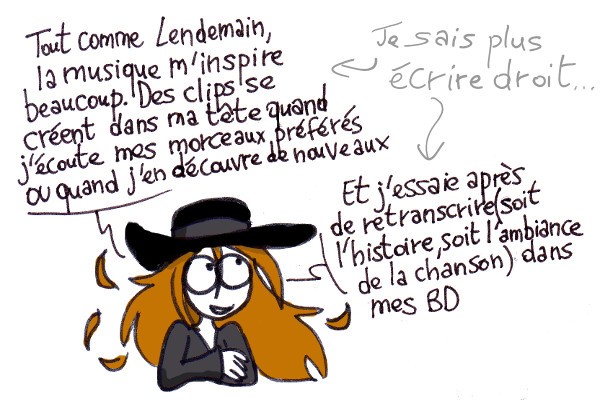 Tout comme Lendemain,
la musique m'inspire
beaucoup. Des clips se
créent dans ma tête quand
j'écoute mes morceaux préférés
ou quand j'en découvre de nouveaux
Je sais plus
écrire droit...
Et j'essaie après
de retranscrire (soit
l'histoire, soit l'ambiance
de la chanson) dans
mes BD